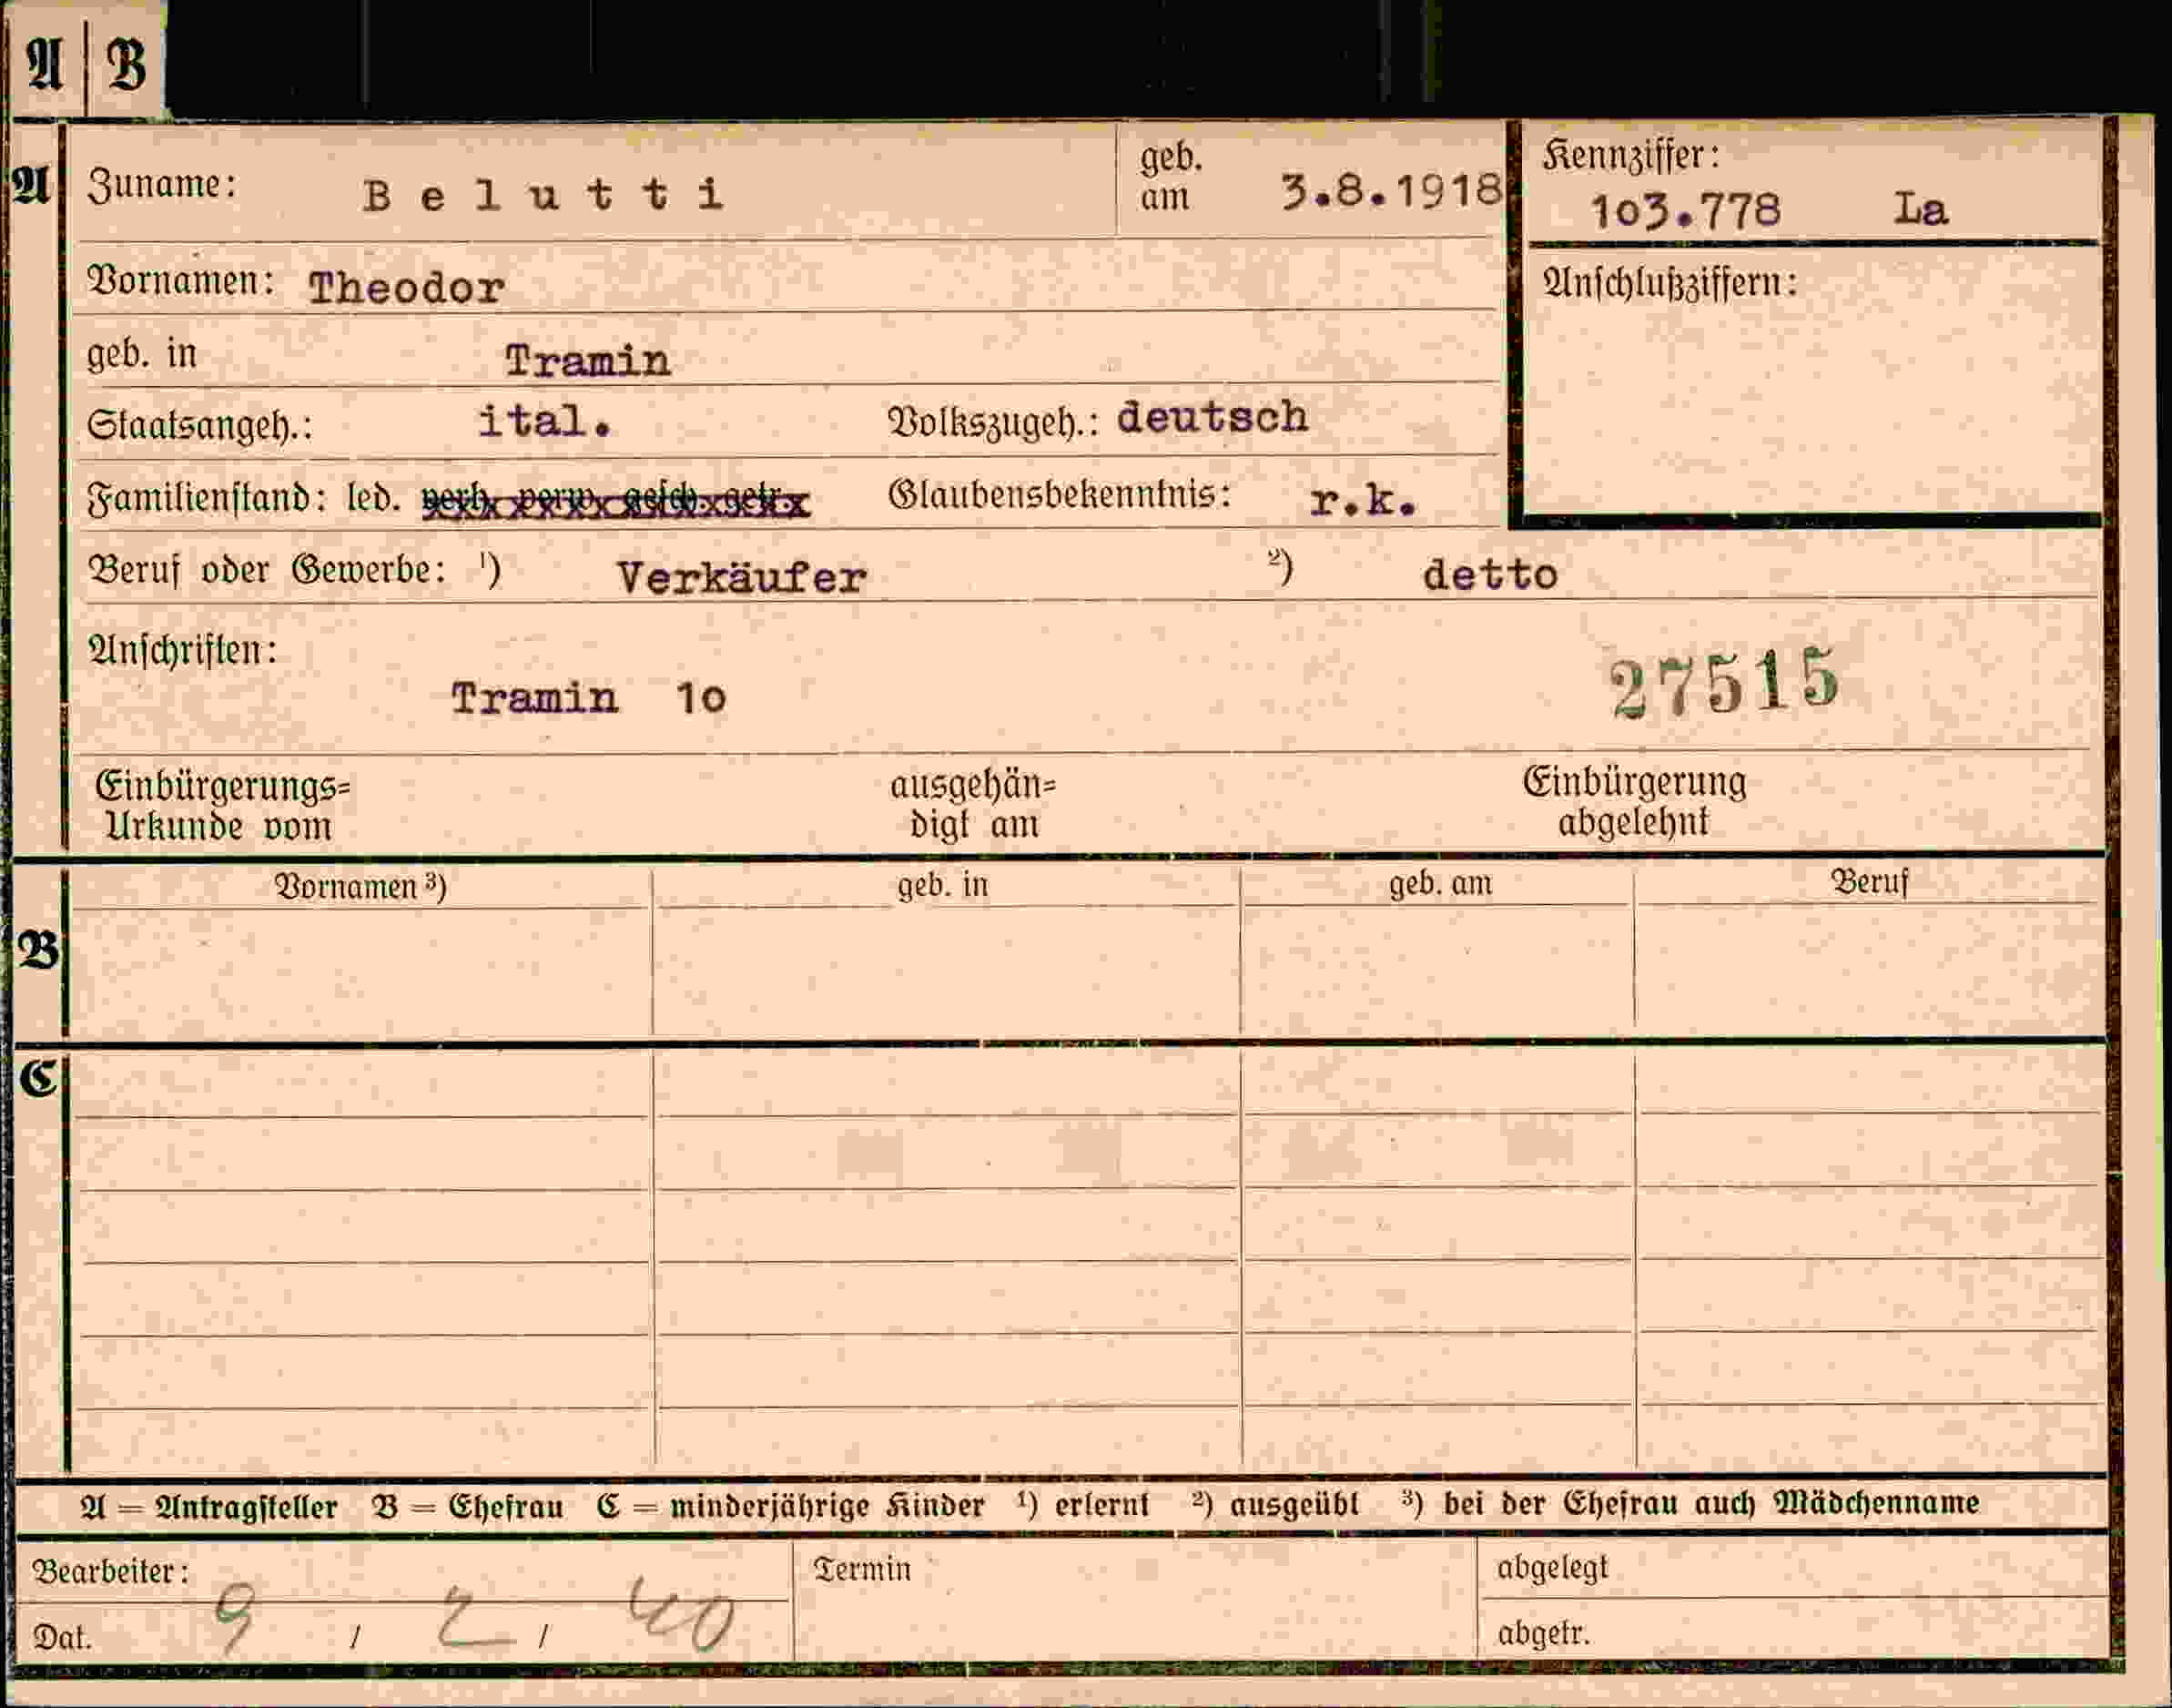 A B
A Zuname: Belutti geb. am 3.8.1918 Kennziffer: 103.778 La
Vornamen: Theodor Anschlußziffern:
geb. in Tramin
Staatsangeh.: ital. Volkszugeh.: deutsch
Familienstand: led. verh. verw. gesch. getr. Glaubensbekenntnis: r.k.
Beruf oder Gewerbe: ¹) Verkäufer ²) detto
Anschriften:
Tramin 1o 27515
Einbürgerungs= ausgehän= Einbürgerung
Urkunde vom digt am abgelehnt
Vornamen ³) geb. in geb. am Beruf
B
C
A = Antragsteller B = Ehefrau C = minderjährige Kinder ¹) erlernt ²) ausgeübt ³) bei der Ehefrau auch Mädchenname
Bearbeiter: Termin abgelegt
Dat. 9 / 2 / 40 abgetr.